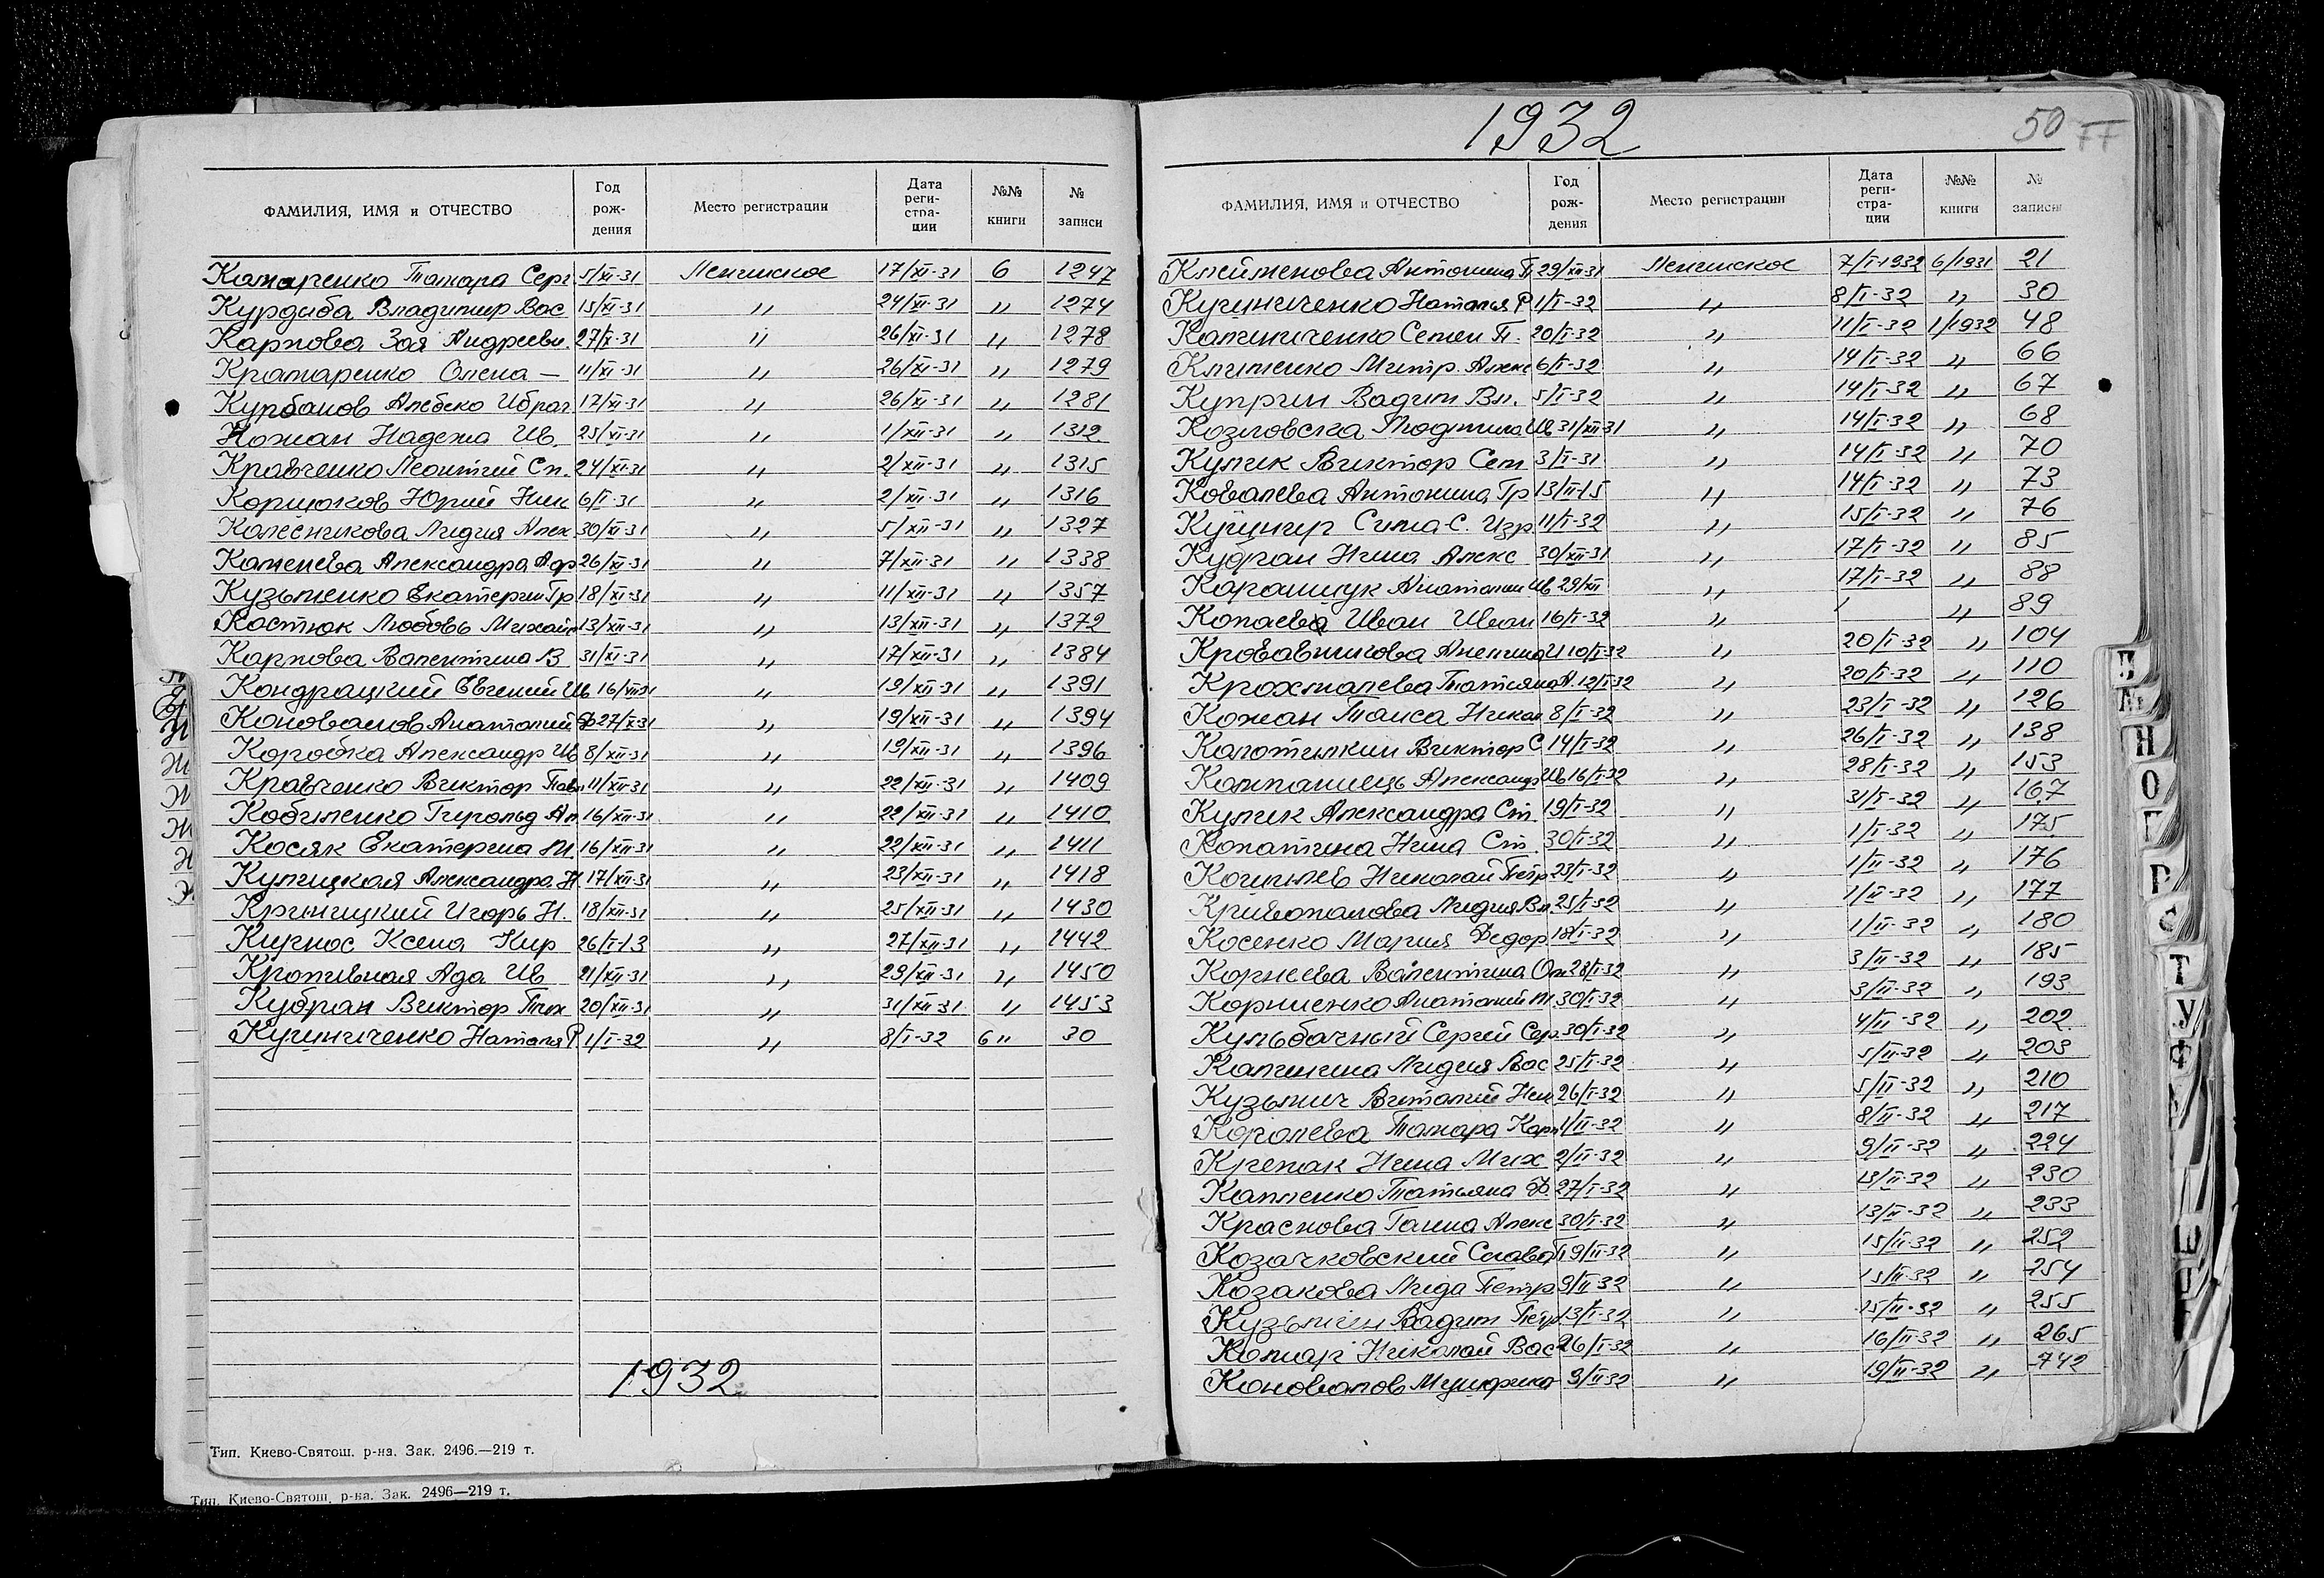 ФАМИЛИЯ, ИМЯ и ОТЧЕСТВО Год рож-дения Место регистрации Дата реги-стра-ции №№ книги № записи
Комаренко Тамара Серг 5/XI-31 Ленинское 17/XI-31 6 1247
Курдиба Владимир Вас 15/XI-31 〃 24/XI-31 〃 1274
Карпова Зоя Андреевн. 27/X-31 〃 26/XI-31 〃 1278
Крамаренко Олена — 11/XI-31 〃 26/XI-31 〃 1279
Курбанов Ибраг 17/XI-31 〃 26/XI-31 〃 1281
Кожан Надежа Ив. 25/XI-31 〃 1/XII-31 〃 1312
Кравченко Леонтий Сп. 24/XI-31 〃 2/XII-31 〃 1315
Юрий Ник 6/II-31 〃 2/XII-31 〃 1316
Колесникова Лидия Алек 30/XI-31 〃 5/XII-31 〃 1327
Каменева Александра Афр 26/XI-31 〃 7/XII-31 〃 1338
Кузьменко Екатерин Гр 18/XI-31 〃 11/XII-31 〃 1357
Костюк Любовь Михайл 13/XII-31 〃 13/XII-31 〃 1372
Карпова Валентина В 31/XI-31 〃 17/XII-31 〃 1384
Кондрацкий Евгений Ив 16/XII-31 〃 19/XII-31 〃 1391
Коновалов Анатолий Ф 27/X-31 〃 19/XII-31 〃 1394
Коробка Александр Ив 8/XII-31 〃 19/XII-31 〃 1396
Кравченко Виктор Павл 11/XII-31 〃 22/XII-31 〃 1409
Гирольд Ал 16/XII-31 〃 22/XII-31 〃 1410
Косяк Екатерина М. 16/XII-31 〃 22/XII-31 〃 1411
Кулицкая Александра Н 17/XII-31 〃 23/XII-31 〃 1418
Криницкий Игорь Н. 18/XII-31 〃 25/XII-31 〃 1430
Кирнос Ксена Кир 26/I-13 〃 27/XII-31 〃 1442
Кропивная Ада Ив 21/XII-31 〃 29/XII-31 〃 1450
Кубрак Виктор Тих 20/XII-31 〃 31/XII-31 〃 1453
Кушниченко Наталя Р 1/I-32 〃 8/I-32 6 〃 30
1932
Тип. Киево-Святош. р-на. Зак. 2496.—219 т.
Тип. Киево-Святош. р-на. Зак. 2496—219 т.
1932
50 77
ФАМИЛИЯ, ИМЯ и ОТЧЕСТВО Год рож-дения Место регистрации Дата реги-стра-ции №№ книги № записи
Клейменова Антонина П 29/XII-31 Ленинское 7/I-1932 6/1931 21
Кушниченко Наталья Р 1/I-32 〃 8/I-32 〃 30
Калиниченко Семен П. 20/I-32 〃 11/I-32 1/1932 48
Клименко Митр. Алекс 6/I-32 〃 14/I-32 〃 66
Куприн Вадим Вл. 5/I-32 〃 14/I-32 〃 67
Козловска Людмила Ив 31/XII-31 〃 14/I-32 〃 68
Кулик Виктор Сем 3/I-31 〃 14/I-32 〃 70
Ковалева Антонина Гр 13/II-15 〃 14/I-32 〃 73
Кушнир Сима-С. Изр 11/I-32 〃 15/I-32 〃 76
Кубрак Нина Алекс 30/XII-31 〃 17/I-32 〃 85
Анатолий Ив 29/XII 〃 17/I-32 〃 88
Копаева Иван Иван 16/I-32 〃 〃 89
10/I-32 〃 20/I-32 〃 104
Крохмалева Татьяна А. 12/I-32 〃 20/I-32 〃 110
Кожан Таиса Никол 8/I-32 〃 23/I-32 〃 126
Колотилкин Виктор С 14/I-32 〃 26/I-32 〃 138
Компаниец Александр Ив 16/I-32 〃 28/I-32 〃 153
Кулик Александра Ст. 19/I-32 〃 31/I-32 〃 167
Копатина Нина Ст. 30/I-32 〃 1/I-32 〃 175
Николай Петр 23/I-32 〃 1/II-32 〃 176
Кривопалова Лидия Вл 25/I-32 〃 1/II-32 〃 177
Косенко Мария Федор 18/I-32 〃 1/II-32 〃 180
Корнеева Валентина 28/I-32 〃 3/II-32 〃 185
Корниенко Анатолий М 30/I-32 〃 3/II-32 〃 193
Кульбачный Сергей Сер 30/I-32 〃 4/II-32 〃 202
Калинина Лидия Вас 25/I-32 〃 5/II-32 〃 203
Кузьмич Виталий Ник 26/I-32 〃 5/II-32 〃 210
Королева Тамара Карп 1/II-32 〃 8/II-32 〃 217
Крепак Нина Мих 2/II-32 〃 9/II-32 〃 224
Капленко Татьяна Ф. 27/I-32 〃 13/II-32 〃 230
Краснова Ганна Алекс 30/I-32 〃 13/II-32 〃 233
Козачковский Слава П 9/II-32 〃 15/II-32 〃 252
Козакова Лида Петр 9/II-32 〃 15/II-32 〃 254
Кузьмин Вадим Петр 13/I-32 〃 15/II-32 〃 255
Комар Николай Вас 26/I-32 〃 16/II-32 〃 265
Коновалов 9/II-32 〃 19/II-32 〃 742
Н
О
П
Р
С
Т
У
Ф